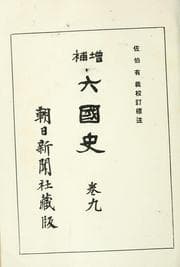 佐伯有義校訂標注
増補
六國史
卷九
朝日新聞社藏版